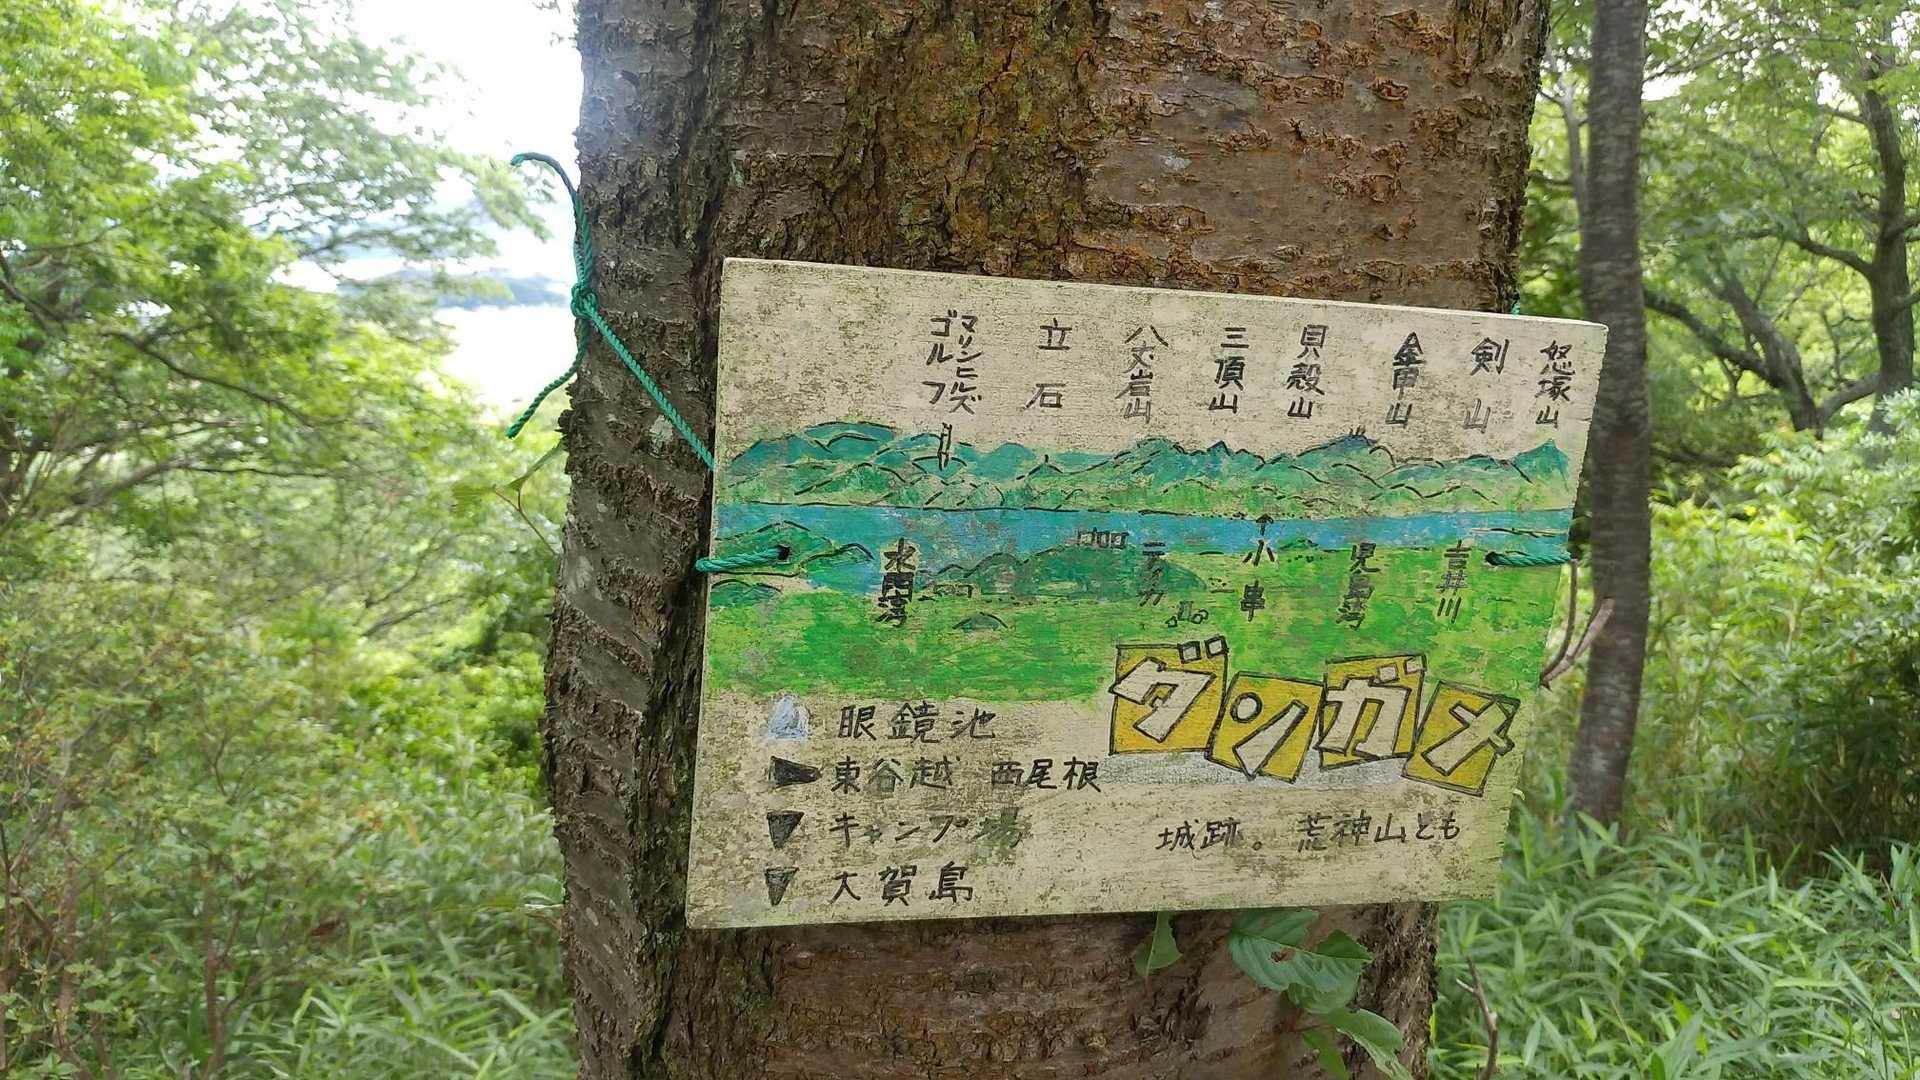 マリンヒルズ
ゴルフ
立石
八丈岩山
三頂山
貝殻山
金甲山
剣山
怒塚山
水門湾
ニテカ
小串
児島湾
吉井川
ダンガメ
眼鏡池
東谷越 西尾根
キャンプ場
大賀島
城跡。荒神山とも